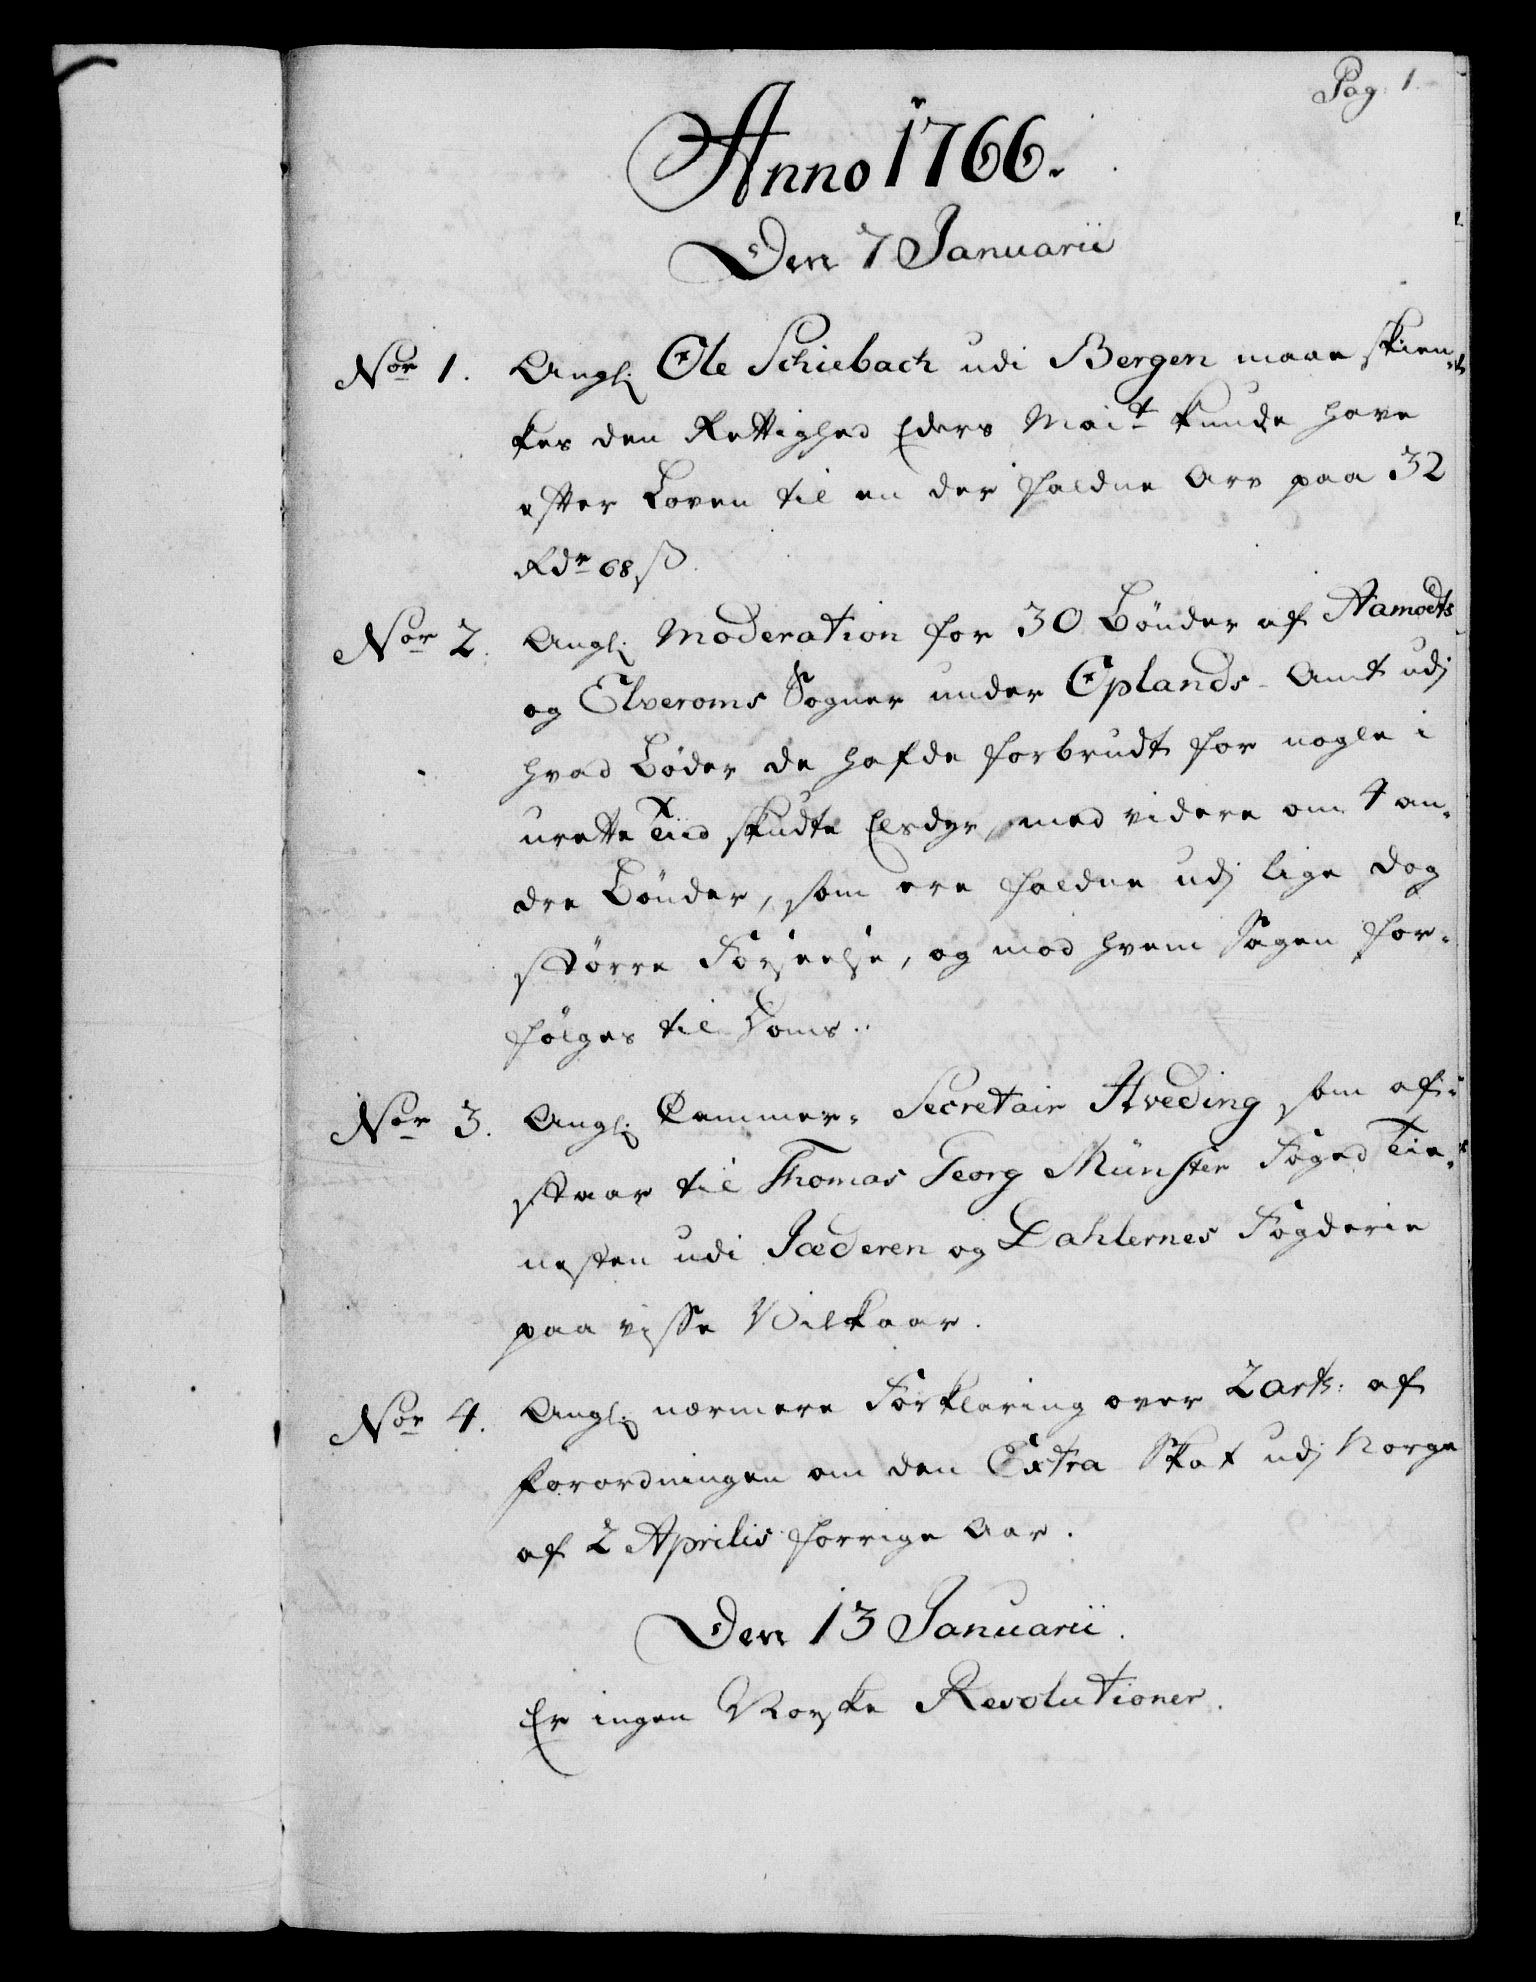 Pag. 1.
Anno 1766.
Den 7 Januarii
Nor 1. Angl: Ole Schiebach udi Bergen maae skien-
kes den Rettighed Eders Mait kunde have
efter Loven til en der falden Arv paa 32
Rdr 68 ß.
Nor 2. Angl: Moderation for 30 Bönder af Aamodts
og Elveroms Sogner under Oplands-Amt udj
hvad Böder de hafde forbrudt for nogle i
urette Tiid skudte Elsdyr, med videre om 4 an-
dre Bönder, som ere faldne udj lige dog
större Forseelse, og mod hvem Sagen for-
følges til Doms.
Nor 3. Angl: Cammer-Secretair Hveding som af-
staar til Thomas Georg Münster Foged Tie-
nesten udi Jæderen og Dahlernes Fogderie
paa visse Vilkaar.
Nor 4. Angl: nærmere Forklaring over 2 art: af
Forordningen om den Extra Skat udj Norge
af 2 Aprilis forrige Aar.
Den 13 Januarii.
Er ingen Norske Resolutioner.